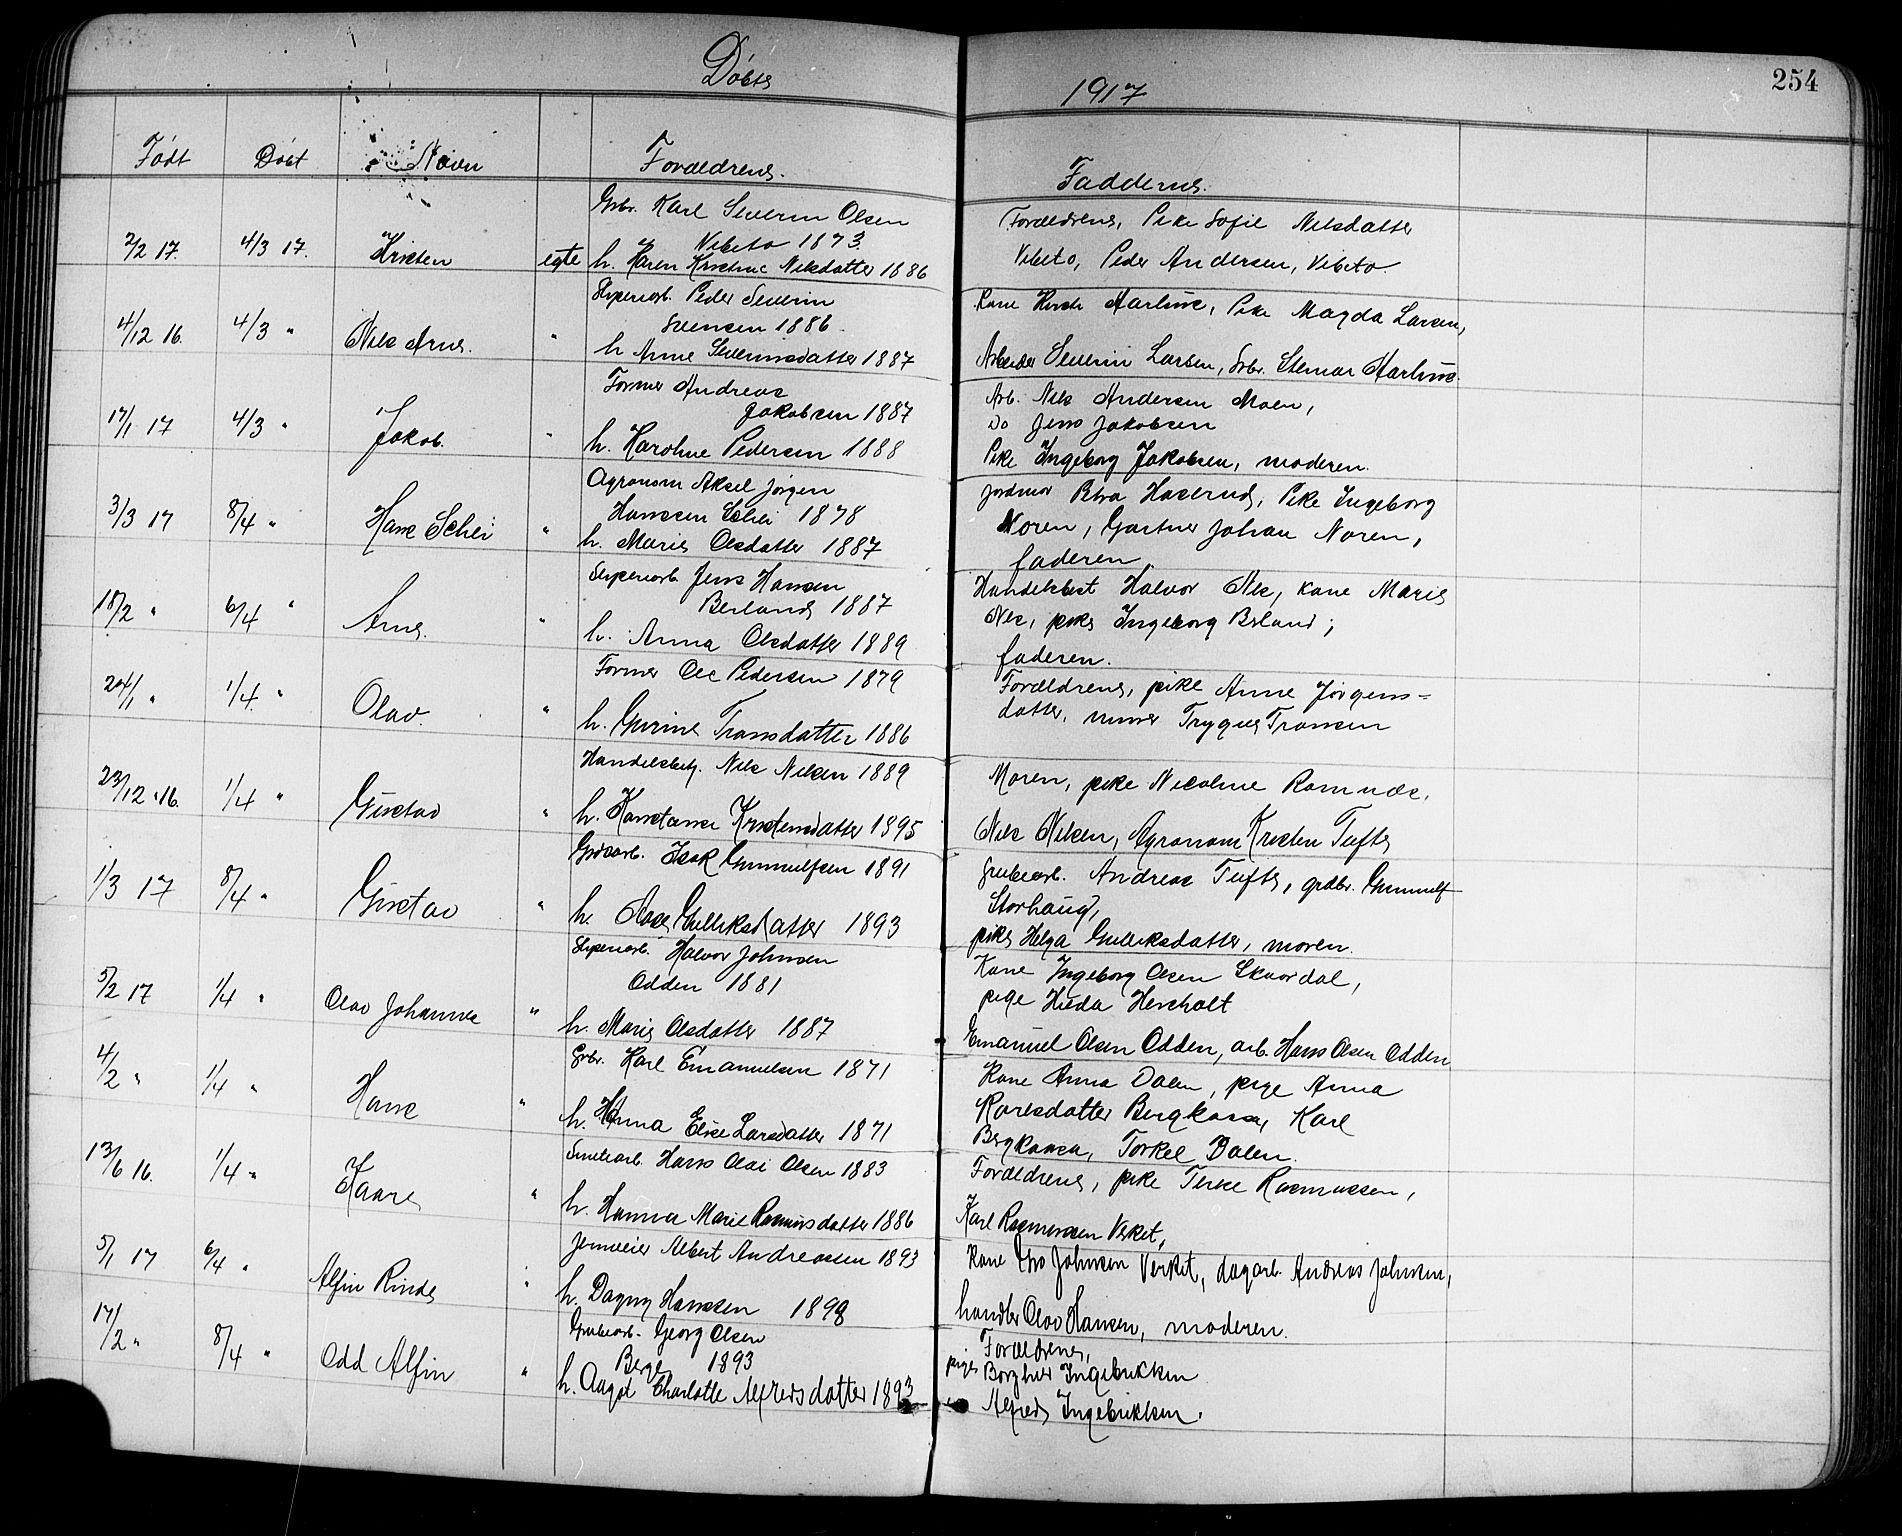 Døbte
1917
254
Født Døbt Navn Forældrene. Fadderne.
2/2 17. 4/3 17. Kristen egte
Gbr. Karl Severin Olsen
Vibeto 1873.
h. Karen Kristine Nilsdatter 1886
Forældrene, Pike Sofie Nilsdatter
Vibeto, Peder Andersen, Vibeto
4/12 16. 4/3 " Nils Arne. "
Sliperiarb. Peder Severin
Svensen 1886.
h Anne Severinsdatter 1887
Kone Aarhus, Pike Magda Larsen,
Arbeider Severin Larsen, Gbr. Steinar Aarhus.
17/1 17 4/3 " Jakob. "
Former Andreas
Jakobsen 1887
h. Karoline Pedersen 1888
Arb. Nils Andersen Moen,
Do Jens Jakobsen
Pike Ingeborg Jakobsen, moderen.
3/3 17 8/4 " Hans Schei "
Agronom Aksel Jørgen
Hanssen Schei 1878
h. Marie Olsdatter 1887
Jordmor Petra Haserud, Pike Ingeborg
Noren, Gartner Johan Noren,
faderen.
18/2 " 6/4 " Arne. "
Sliperiarb. Jens Hansen
Berland 1887
h. Anna Olsdatter 1889
Handelsbest Halvor Nes, kone Marie
Nes, pike Ingeborg Berland;
faderen.
24/1 " 1/4 " Olav. "
Former Ole Pedersen 1879
h. Gurine Transdatter 1886
Forældrene, pike Anne Jørgens=
datter, murer Trygve Transen
23/12 16. 1/4 " Gustav "
Handelsbetj. Nils Nilsen 1889
h. Konstanse Kristensdatter 1895
Moren, pike Nicoline Romnæs,
Nils Nilsen, Agronom Kristen Tufte
1/3 17 8/4 " Gustav "
Isak Gunnulfsen 1891
h. Aase Gulliksdatter 1893
Grubearb. Andreas Tufte, grdbr. Gunnulf
Storhaug,
pike Helga Gulliksdatter, moren.
5/2 17 1/4 " Olav Johannes "
Sliperiarb. Halvor Johnsen
Odden 1881
h. Marie Olsdatter 1887
Kone Ingeborg Olsen Skaordal,
pige Hilda Hersholt
Emanuel Olsen Odden, arb. Hans Olsen Odden
4/2 " 1/4 " Hans "
Gbr. Karl Emanuelsen 1871
h. Anna Elise Larsdatter 1871
Kone Anna Dalen, pige Anna
Karlsdatter Bergkaasa, Karl
Bergkaasa, Torkel Dalen.
13/6 16. 1/4 " Kaare "
Hans Olai Olsen 1883
h. Hanna Marie Rasmusdatter 1886
Forældrene, pike Terese Rasmussen,
Karl Rasmussen Verket,
5/1 17 6/4 " Alfin Rinde "
Albert Andreassen 1893
h. Dagny Hanssen 1898
Kone Johnsen Verket, dagarb. Andreas Johnsen,
handler Olav Hansen, moderen.
17/2 " 8/4 " Odd Alfin "
Grubearb. Georg Olsen
Berge 1893
h. Aagot Charlotte Alfredsdatter 1893
Forældrene,
pige Borghild Ingebriktsen
Alfred Ingebriktsen.